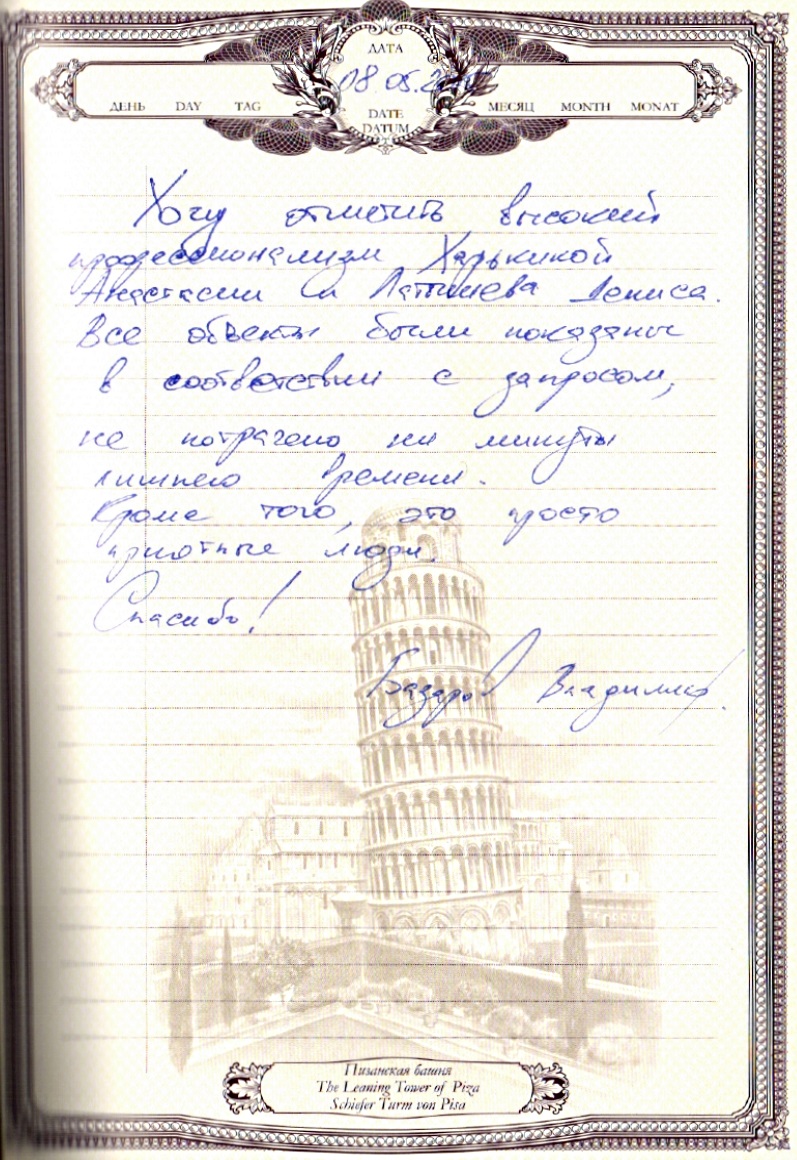 ДАТА
08.05.2
ДЕНЬ DAY TAG
DATE
DATUM
МЕСЯЦ MONTH MONAT
Хочу отметить высокий
профессионализм Харькиной
Анастасии и Латышева Дениса.
Все объекты были показаны
в соответствии с запросом,
не потрачено ни минуты
лишнего времени.
Кроме того, это просто
приятные люди.
Спасибо!
Базаров Владимир.
Пизанская башня
The Leaning Tower of Piza
Schiefer Turm von Pisa